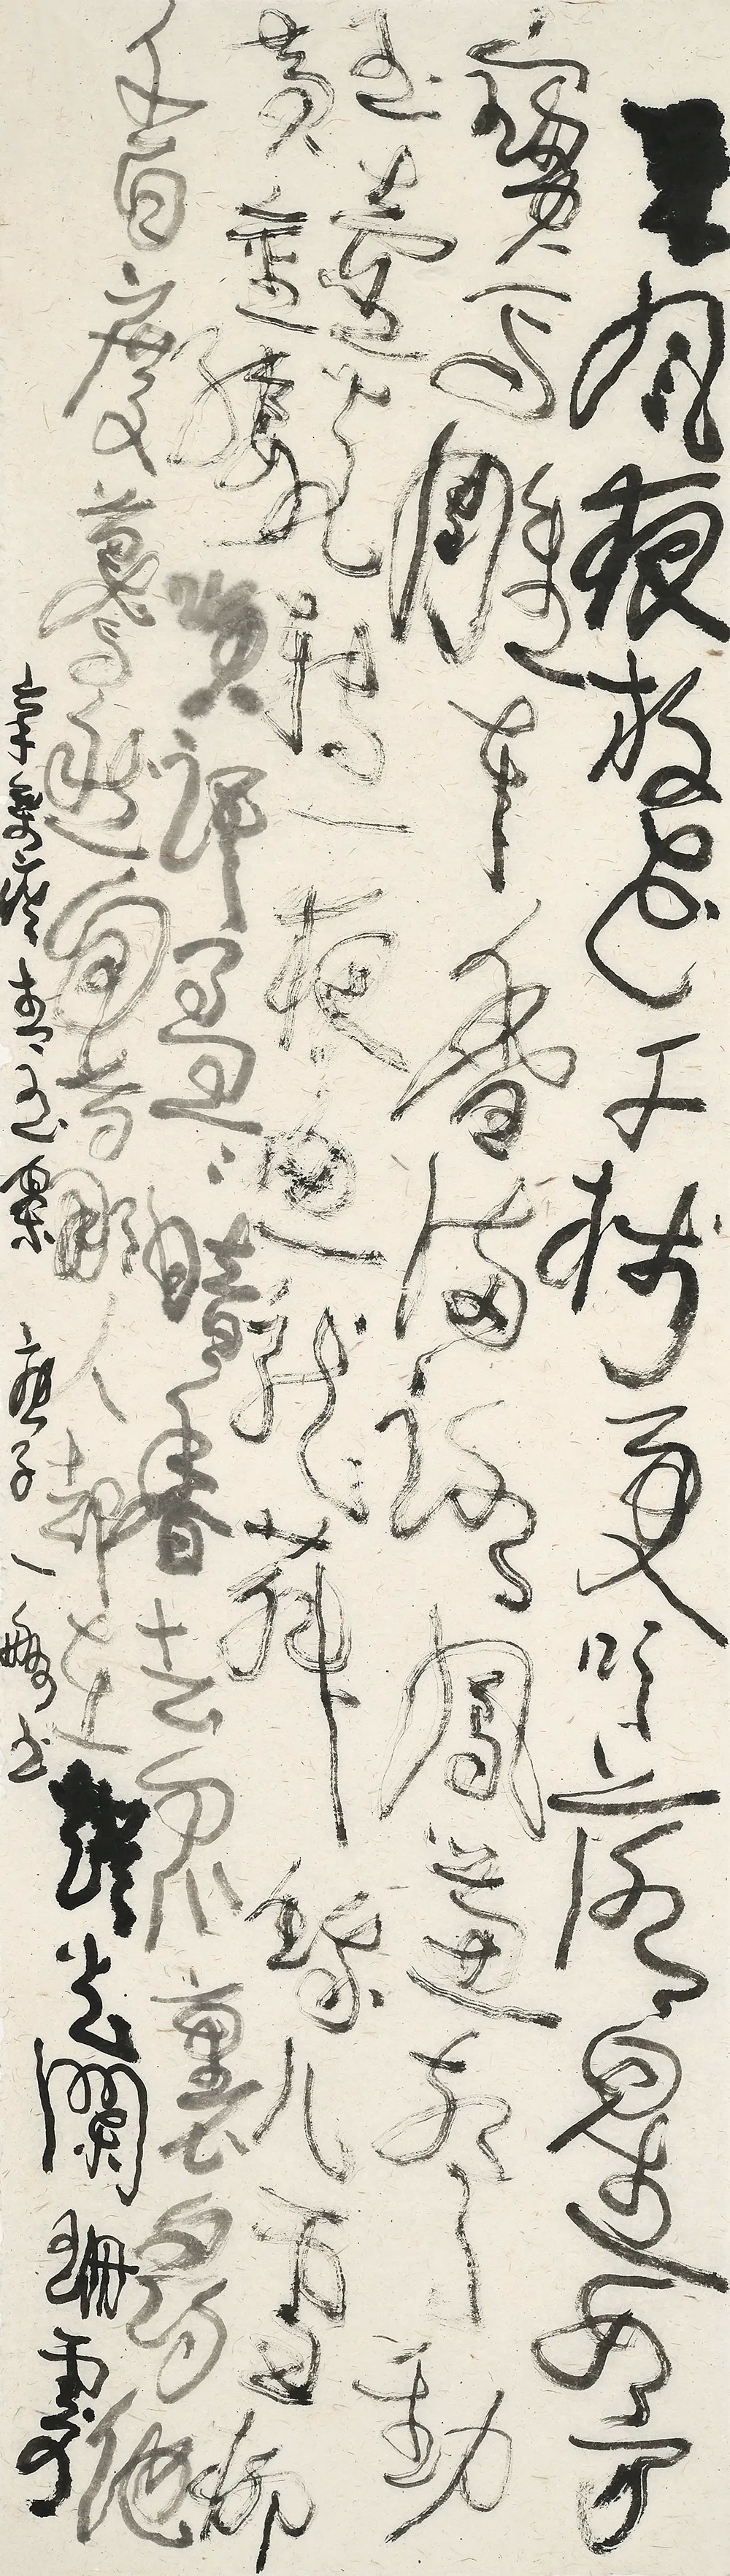 東風夜放花千樹更吹落星如雨
寶馬雕車香滿路鳳簫聲動
玉壺光轉一夜魚龍舞蛾兒雪柳
黃金縷笑語盈盈暗香去眾裏尋他
千百度驀然回首那人卻在燈火闌珊處
辛棄疾青玉案 庚子一書